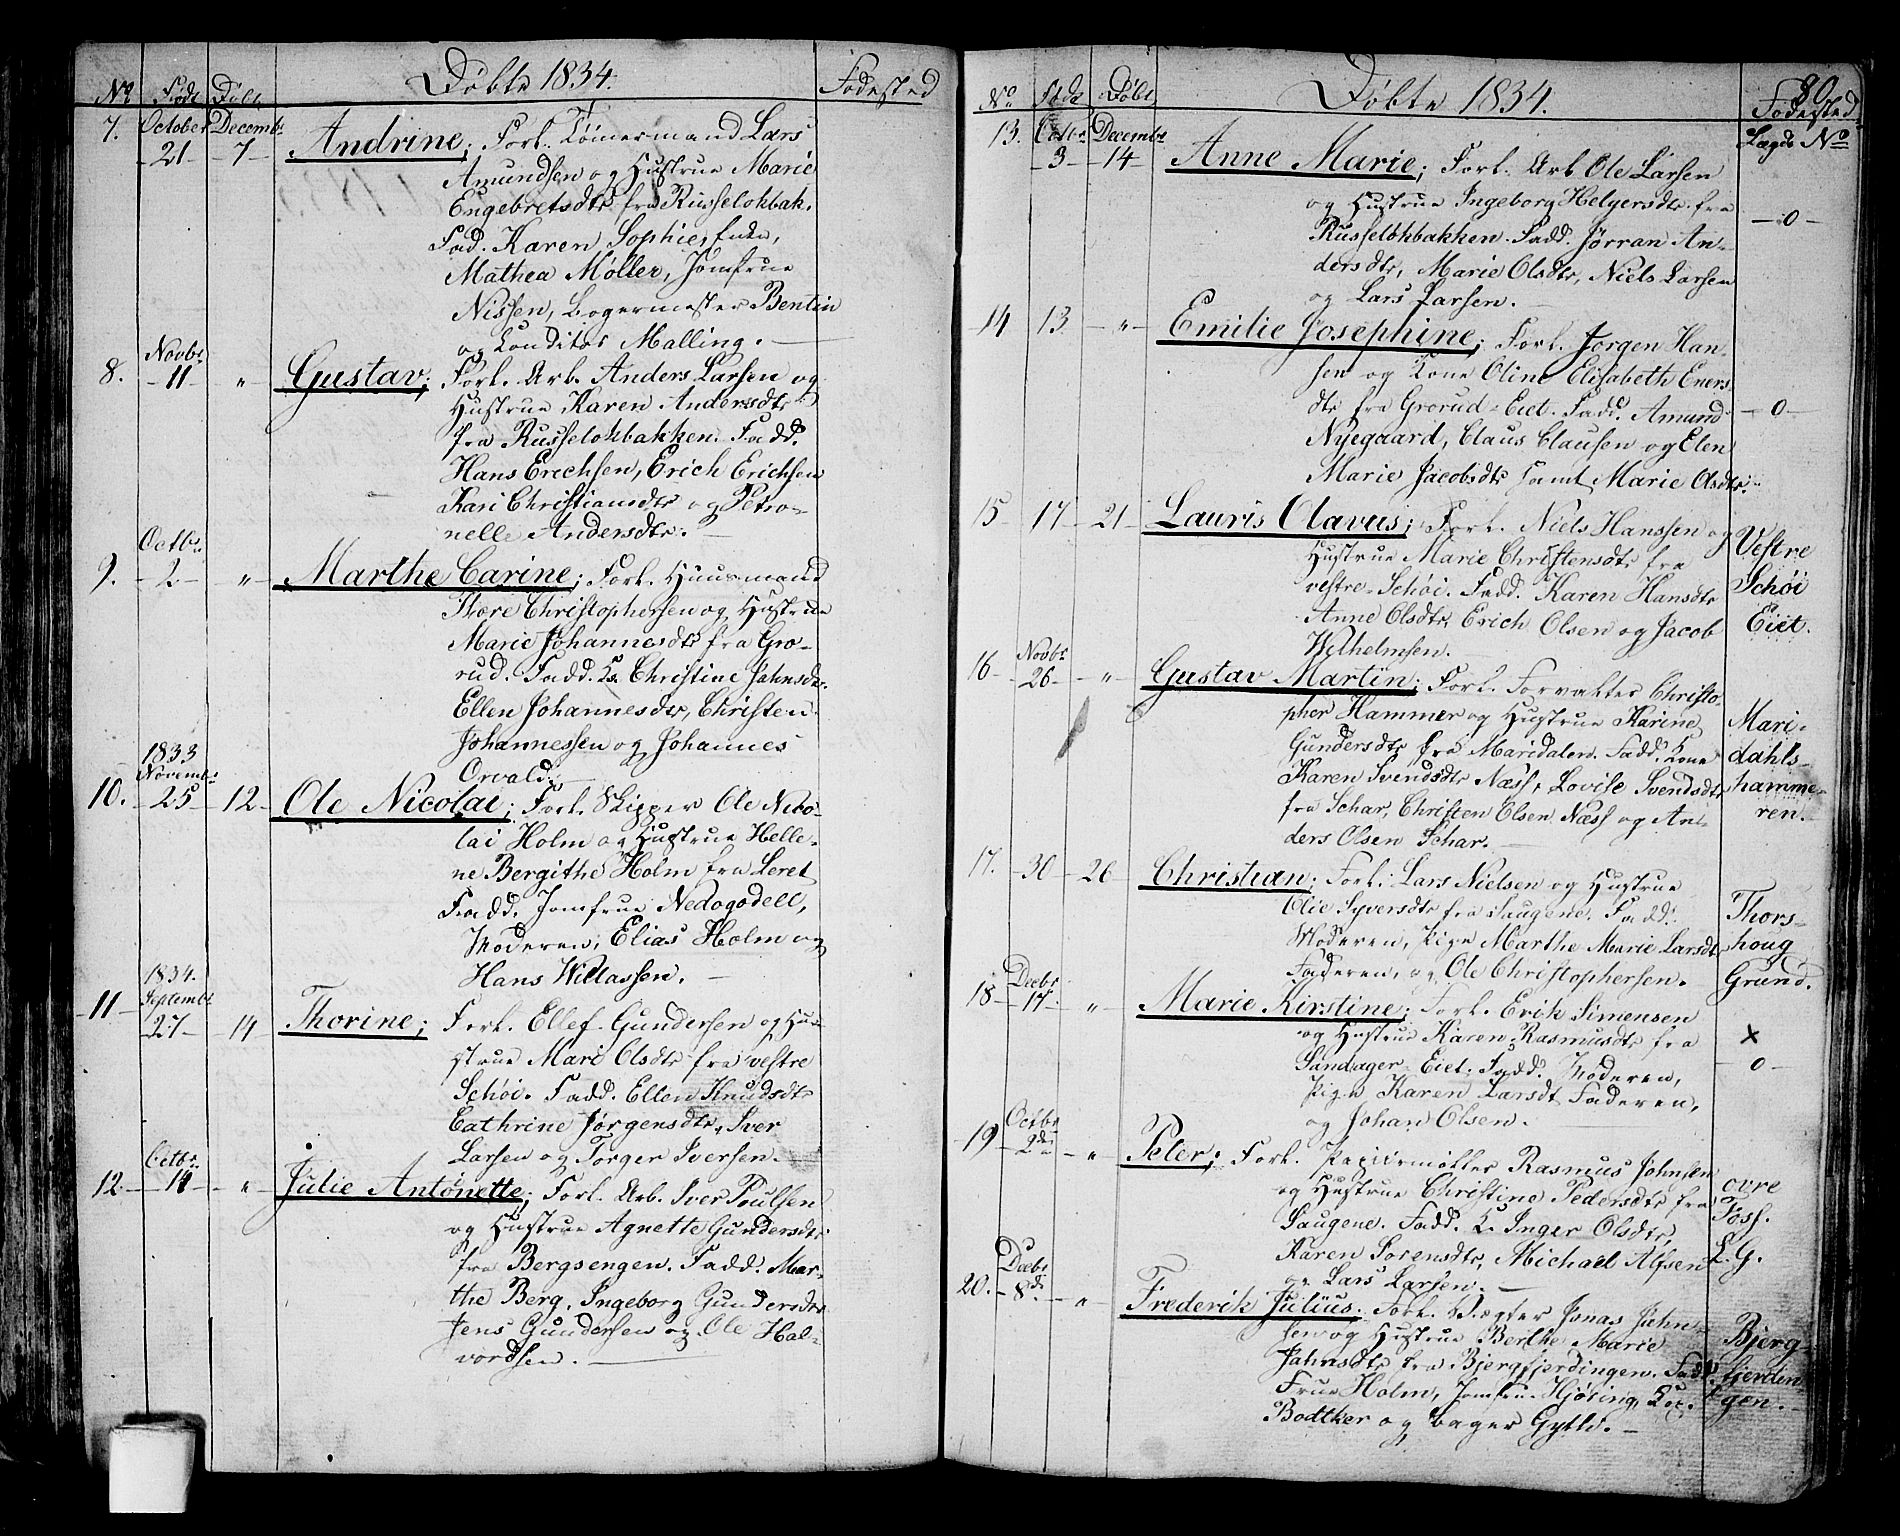 Døbte 1834.
Fødested
No Født Døbt
7. October 21 Decembr 7 Andrine; Forl. Tømermand Lars
Amundsen og Hustrue Marie
Engebretsdtr fra Russeløkbak.
Fad. Karen Sophie, Enke,
Mathea Møller, Jomfrue
Nissen, Bogermester Bentin
og Conditor Malling.
8. Novbr 11 " Gustav; Forl. Arb. Anders Larsen og
Hustrue Karen Andersdtr
fra Russeløkbakken. Fadd.
Hans Erichsen, Erich Erichsen
Kari Christiansdtr og Petro-
nelle Andersdtr.
9. Octbr 2 " Marthe Carine; Forl. Huusmand
Thore Christophersen og Hustrue
Marie Johannesdtr fra Gro-
rud. Fadd. K. Christine Jahnsdtr.
Ellen Johannesdtr, Christen
Johannessen og Johannes
Orvald.
10. 1833 Novembr 25 12 Ole Nicolai; Forl. Skipper Ole Nico-
lai Holm og Hustrue Helle-
ne Bergithe Holm fra Leret
Fadd. Jomfrue Nedogodell,
Moderen, Elias Holm og
Hans Willassen.
11 1834. Septembr 27 14 Thorine; Forl. Ellef Gundersen og Hu-
strue Mari Olsdtr fra vestre
Schøi. Fadd. Ellen Knudsdtr
Cathrine Jørgensdtr, Sver
Larsen og Torger Iversen.
12. Octbr 14 " Julie Antonette; Forl. Arb. Iver Poulsen
og Hustrue Agnette Gundersdtr
fra Bergsengen. Fadd. Mar-
the Berg, Ingeborg Gundersdtr
Jens Gundersen og Ole Hal-
vordsen.
80.
Døbte 1834.
No Født Døbt
Fødested
Lægds No
13. Octbr 3 Decembr 14 Anne Marie; Forl. Arb Ole Larsen
og Hustrue Ingeborg Helgersdtr fra
Russeløkbakken. Fadd. Jørran An-
dersdtr, Marie Olsdtr, Niels Larsen
og Lars Larsen.
0
14 13 " Emilie Josephine; Forl. Jorgen Han-
sen og Kone Oline Elisabeth Eners
dtr fra Grorud-Eiet. Fadd. Amund
Nyegaard, Claus Clausen og Elen
Marie Jacobsdtr samt Marie Olsdtr.
0
15 17 21 Lauris Olavus; Forl. Niels Hanssen og
Hustrue Marie Christensdtr fra
vestre-Schøi. Fadd. Karen Hansdtr
Anne Olsdtr, Erich Olsen og Jacob
Wilhelmsen.
Vestre
Schøi
Eiet.
16 Novbr 26 " Gustav Martin; Forl. Forvalter Christo
pher Hammer og Hustrue Karine
Gundersdtr fra Maridalen. Fadd. Kone
Karen Svendsdtr Næss, Lovise Svendsdtr
fra Schar, Christen Olsen Næss og An-
ders Olsen Schar.
Mari-
dahls-
hamme-
ren.
17. 30 26 Christian; Forl. Lars Nielsen og Hustrue
Olie Syversdtr fra Saugene. Fadd.
Moderen, Pige Marthe Marie Larsdtr
Faderen, og Ole Christophersen.
Thors-
houg
Grund.
18 Decbr 17 " Marie Kirstine; Forl. Erik Simensen
og Hustrue Karen Rasmusdtr fra
Sandager-Eiet. Fadd. Moderen,
Pige Karen Larsdt Faderen,
og Johan Olsen.
x
0
19 Octbr 2de " Peter; Forl. Papiermøller Rasmus Johnsen
og Hustrue Christine Pedersdtr fra
Saugene. Fadd. K. Inger Olsdtr,
Karen Sorensdtr, Michael Alfsen
og Lars Larsen.
ovre
Foss.
L. G.
20. Decbr 8de " Frederik Julius; Forl. Vægter Jonas Jahn-
sen og Hustrue Berthe Marie
Jahnsdtr fra Bjergfjerdingen. Fadd.
Frue Holm, Jomfru Hjøring,
Bødtker og bager Gytte.
Bjerg-
fjerdin
gen.